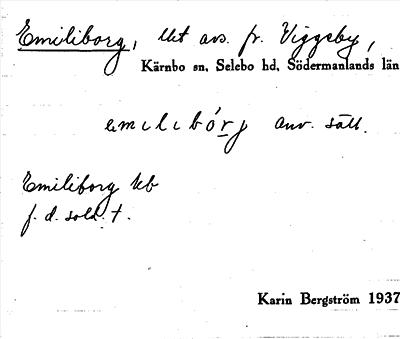 Emiliborg, lht avs. fr. Viggeby,
Kärnbo sn, Selebo hd, Södermanlands län
emilibórj anv. sätt.
Emiliborg kb
f. d. sold. t.
Karin Bergström 1937